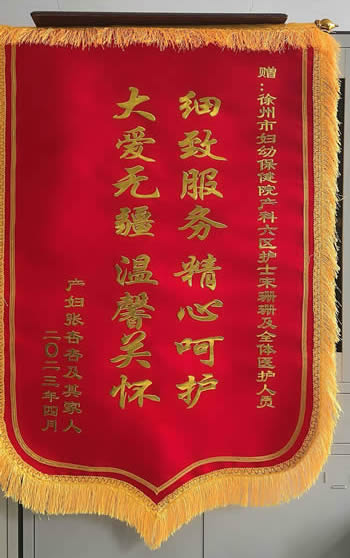 赠：徐州市妇幼保健院产科六区护士宋珊珊及全体医护人员
细致服务 精心呵护
大爱无疆 温馨关怀
产妇张杏杏及其家人
二〇二三年四月